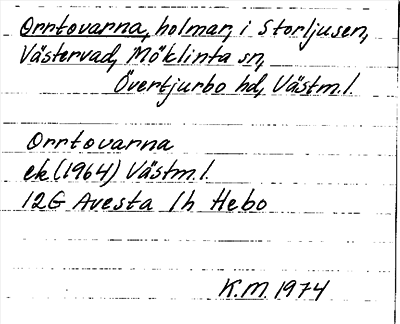 Orrtovarna, holmar, i Storljusen,
Västervad, Möklinta sn,
Övertjurbo hd, Västm.l.
Orrtovarna
ek (1964) Västm.l.
12G Avesta 1h Hebo
K.M. 1974